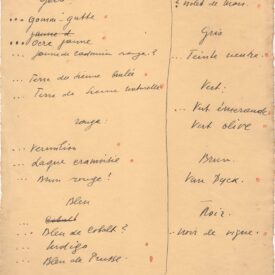 ... gomme-gutte
jaune d
... Ocre jaune
... jaune de cadmium rouge?
... Terre de Sienne brûlée
... Terre de Sienne naturelle
rouge:
... vermillon
... Laque cramoisie
... Brun rouge!
Bleu
Cobalt
... Bleu de Cobalt?
... Indigo
... Bleu de Prusse.
Gris
... Teinte neutre.
Vert:
... Vert émeraude
Vert olive
Brun.
Van Dyck.
Noir.
... noir de vigne.